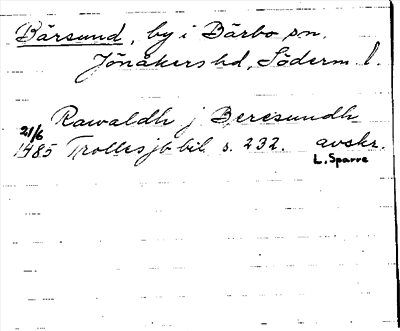 Bärsund, by i Bärbo sn.
Jönåkers hd, Söderm. l.
Rawaldh j Beresundh
21/6
1485 Trolles jb bil. s. 232. avskr.
L. Sparre